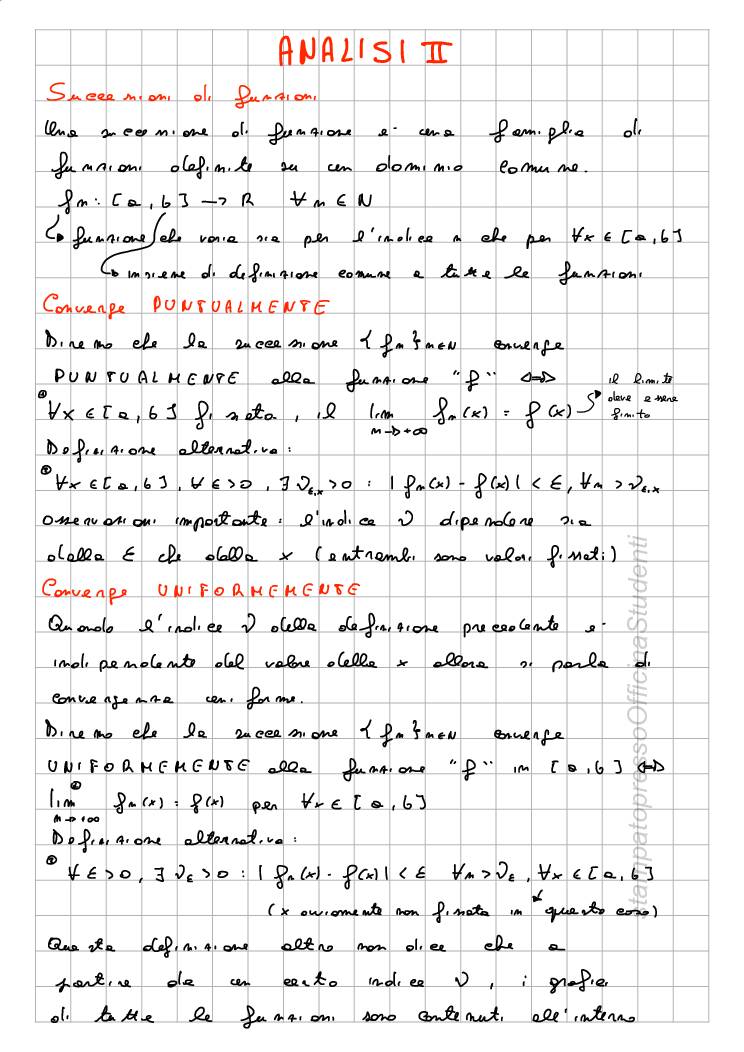 ANALISI II
Successioni di funzioni
Una successione di funzione e- una famiglia di
funzioni definite su un dominio comune.
fn: [a, b] → R ∀n ∈ N
↳ funzione che varia sia per l'indice n che per ∀x ∈ [a, b]
↳ insieme di definizione comune a tutte le funzioni
Converge PUNTUALMENTE
Diremo che la successione {fn}n∈N converge
PUNTUALMENTE alla funzione "f" ⟺
① ∀x ∈ [a, b] fissata, il lim n→+∞ fn(x) = f(x) → il limite deve essere finito
Definizione alternativa:
② ∀x ∈ [a, b], ∀ε>0, ∃ νε,x>0 : |fn(x) - f(x)| < ε, ∀n > νε,x
osservazioni importante: l'indice ν dipendere sia
dalla ε che dalla x (entrambi sono valori fissati)
Converge UNIFORMEMENTE
Quando l'indice ν della definizione precedente e-
indipendente dal valore della x allora si parla di
convergenza uniforme.
Diremo che la successione {fn}n∈N converge
UNIFORMEMENTE alla funzione "f" in [a, b] ⟺
① lim n→+∞ fn(x) = f(x) per ∀x ∈ [a, b]
Definizione alternativa:
② ∀ε>0, ∃ νε>0 : |fn(x) - f(x)| < ε ∀n > νε, ∀x ∈ [a, b]
(x ovviamente non fissata in questo caso)
Questa definizione altro non dice che a
partire da un certo indice ν, i grafici
di tutte le funzioni sono contenuti all'interno
stampatopressoOfficinaStudenti